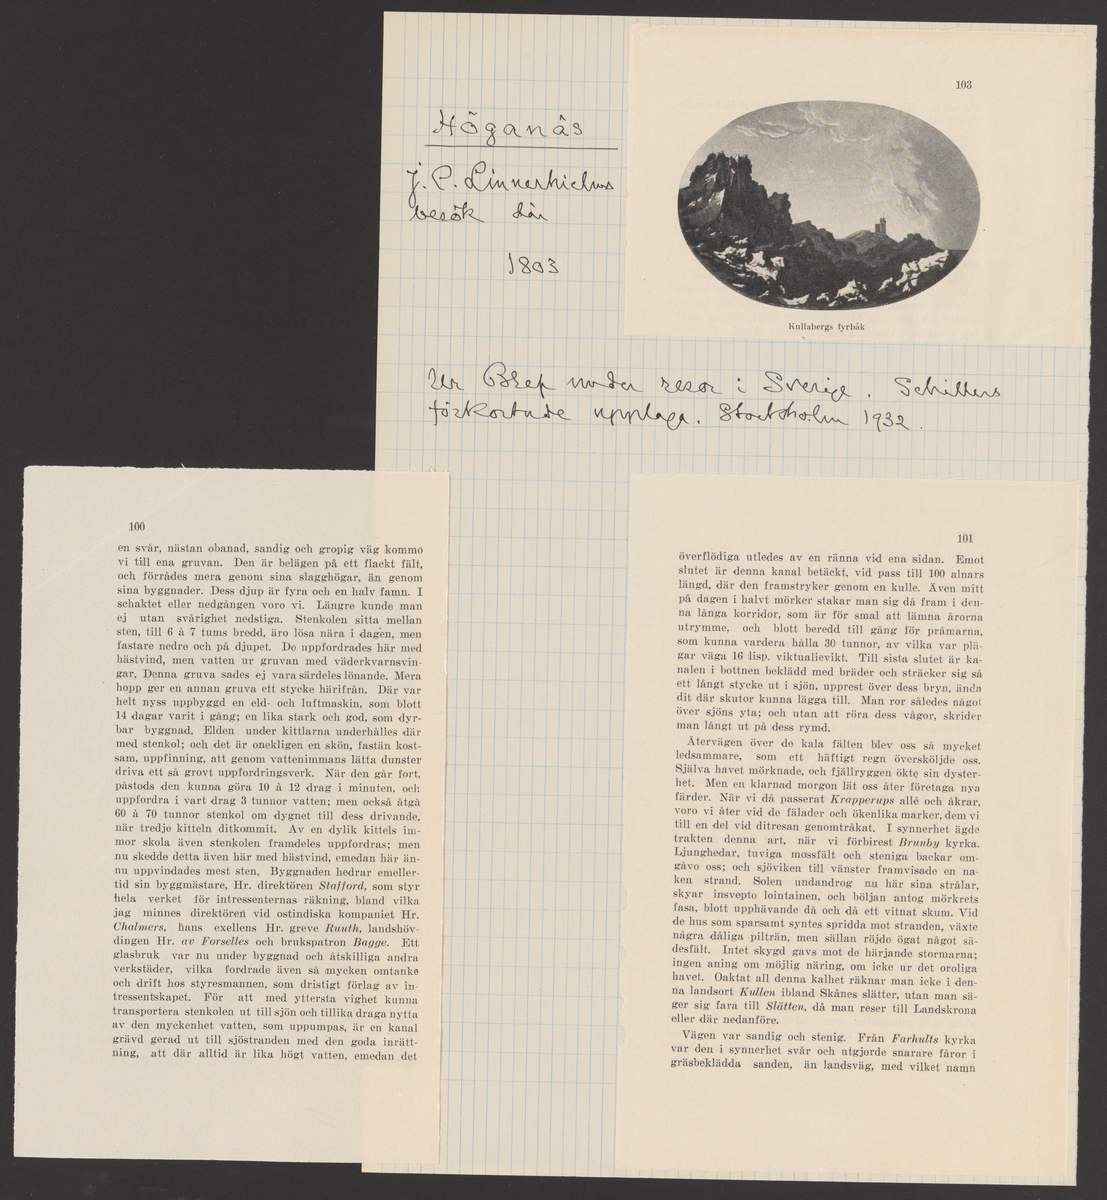 Höganäs
J. C. Linnerhielms
besök där
1803
103
Kullabergs fyrbåk
Ur Bref under resor i Sverige. Schillers
förkortade upplaga. Stockholm 1932.
100
en svår, nästan obanad, sandig och gropig väg kommo
vi till ena gruvan. Den är belägen på ett flackt fält,
och förrådes mera genom sina slagghögar, än genom
sina byggnader. Dess djup är fyra och en halv famn. I
schaktet eller nedgången voro vi. Längre kunde man
ej utan svårighet nedstiga. Stenkolen sitta mellan
sten, till 6 à 7 tums bredd, äro lösa nära i dagen, men
fastare nedre och på djupet. De uppfordrades här med
hästvind, men vatten ur gruvan med väderkvarnsvin-
gar. Denna gruva sades ej vara särdeles lönande. Mera
hopp ger en annan gruva ett stycke härifrån. Där var
helt nyss uppbyggd en eld- och luftmaskin, som blott
14 dagar varit i gång; en lika stark och god, som dyr-
bar byggnad. Elden under kittlarna underhålles där
med stenkol; och det är onekligen en skön, fastän kost-
sam, uppfinning, att genom vattenimmans lätta dunster
driva ett så grovt uppfordringsverk. När den går fort,
påstods den kunna göra 10 à 12 drag i minuten, och
uppfordra i vart drag 3 tunnor vatten; men också åtgå
60 à 70 tunnor stenkol om dygnet till dess drivande,
när tredje kitteln ditkommit. Av en dylik kittels im-
mor skola även stenkolen framdeles uppfordras; men
nu skedde detta även här med hästvind, emedan här än-
nu uppvindades mest sten. Byggnaden hedrar emeller-
tid sin byggmästare, Hr. direktören Stafford, som styr
hela verket för intressenternas räkning, bland vilka
jag minnes direktören vid ostindiska kompaniet Hr.
Chalmers, hans exellens Hr. greve Ruuth, landshöv-
dingen Hr. af Forselles och brukspatron Bagge. Ett
glasbruk var nu under byggnad och åtskilliga andra
verkstäder, vilka fordrade även så mycken omtanke
och drift hos styresmannen, som dristigt förlag av in-
tressentskapet. För att med yttersta vighet kunna
transportera stenkolen ut till sjön och tillika draga nytta
av den myckenhet vatten, som uppumpas, är en kanal
grävd gerad ut till sjöstranden med den goda inrätt-
ning, att där alltid är lika högt vatten, emedan det
101
överflödiga utledes av en ränna vid ena sidan. Emot
slutet är denna kanal betäckt, vid pass till 100 alnars
längd, där den framstryker genom en kulle. Även mitt
på dagen i halvt mörker stakar man sig då fram i den-
na långa korridor, som är för smal att lämna årorna
utrymme, och blott beredd till gång för pråmarna,
som kunna vardera hålla 30 tunnor, av vilka var plä-
gar väga 16 lisp. viktualievikt. Till sista slutet är ka-
nalen i bottnen beklädd med bräder och sträcker sig så
ett långt stycke ut i sjön, upprest över dess bryn, ända
dit där skutor kunna lägga till. Man ror således något
över sjöns yta; och utan att röra dess vågor, skrider
man långt ut på dess rymd.
Återvägen över de kala fälten blev oss så mycket
ledsammare, som ett häftigt regn översköljde oss.
Själva havet mörknade, och fjällryggen ökte sin dyster-
het. Men en klarnad morgon lät oss åter företaga nya
färder. När vi då passerat Krapperups allé och åkrar,
voro vi åter vid de fälader och ökenlika marker, dem vi
till en del vid ditresan genomtråkat. I synnerhet ägde
trakten denna art, när vi förbirest Brunby kyrka.
Ljunghedar, tuviga mossfält och steniga backar om-
gåvo oss; och sjöviken till vänster framvisade en na-
ken strand. Solen undandrog nu här sina strålar,
skyar insvepto lointainen, och böljan antog mörkrets
fasa, blott upphävande då och då ett vitnat skum. Vid
de hus som sparsamt syntes spridda mot stranden, växte
några dåliga pilträn, men sällan röjde ögat något sä-
desfält. Intet skygd gavs mot de härjande stormarna;
ingen aning om möjlig näring, om icke ur det oroliga
havet. Oaktat all denna kalhet räknar man icke i den-
na landsort Kullen ibland Skånes slätter, utan man sä-
ger sig fara till Slätten, då man reser till Landskrona
eller där nedanföre.
Vägen var sandig och stenig. Från Farhults kyrka
var den i synnerhet svår och utgjorde snarare fåror i
gräsbeklädda sanden, än landsväg, med vilket namn